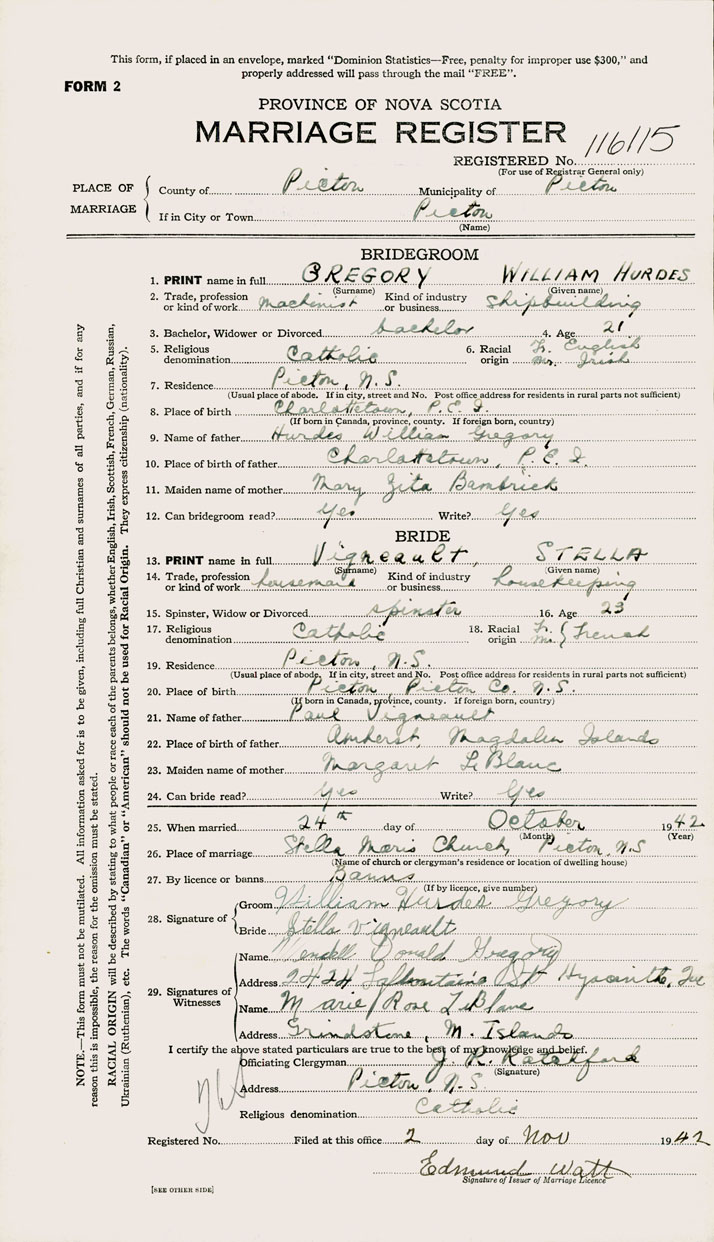 This form, if placed in an envelope, marked "Dominion Statistics—Free, penalty for improper use $300," and
properly addressed will pass through the mail "FREE".
FORM 2
PROVINCE OF NOVA SCOTIA
MARRIAGE REGISTER
REGISTERED No. 116115
(For use of Registrar General only)
PLACE OF MARRIAGE
County of Picton Municipality of Picton
If in City or Town Picton
(Name)
BRIDEGROOM
1. PRINT name in full GREGORY WILLIAM HURDES
(Surname) (Given name)
2. Trade, profession or kind of work machinist Kind of industry or business shipbuilding
3. Bachelor, Widower or Divorced bachelor 4. Age 21
5. Religious denomination Catholic 6. Racial origin Fr. English Mr. Irish
7. Residence Picton, N.S.
(Usual place of abode. If in city, street and No. Post office address for residents in rural parts not sufficient)
8. Place of birth Charlottetown, P.E.I.
(If born in Canada, province, county. If foreign born, country)
9. Name of father Hurdes William Gregory
10. Place of birth of father Charlottetown, P.E.I.
11. Maiden name of mother Mary Zita Bambrick
12. Can bridegroom read? Yes Write? Yes
BRIDE
13. PRINT name in full Vigneault, STELLA
(Surname) (Given name)
14. Trade, profession or kind of work housemaid Kind of industry or business housekeeping
15. Spinster, Widow or Divorced spinster 16. Age 23
17. Religious denomination Catholic 18. Racial origin Fr. Mr. French
19. Residence Picton, N.S.
(Usual place of abode. If in city, street and No. Post office address for residents in rural parts not sufficient)
20. Place of birth Picton Picton Co. N.S.
(If born in Canada, province, county. If foreign born, country)
21. Name of father Paul Vigneault
22. Place of birth of father Amherst, Magdalen Islands
23. Maiden name of mother Margaret LeBlanc
24. Can bride read? Yes Write? Yes
25. When married 24th day of October 1942
(Month) (Year)
26. Place of marriage Stella Maris Church, Picton, N.S
(Name of church or clergyman's residence or location of dwelling house)
27. By licence or banns Banns
(If by licence, give number)
28. Signature of
Groom William Hurdes Gregory
Bride Stella Vigneault
29. Signatures of Witnesses
Name Wendell Donald Gregory
Address 2424 St Hyacinthe, Que
Name Marie Rose LeBlanc
Address Grindstone, M. Islands
I certify the above stated particulars are true to the best of my knowledge and belief.
Officiating Clergyman J. R.
(Signature)
Address Picton, N.S.
Religious denomination Catholic
Registered No. Filed at this office 2 day of Nov 1942
Edmund Watt
Signature of Issuer of Marriage Licence
[SEE OTHER SIDE]
NOTE.—This form must not be mutilated. All information asked for is to be given, including full Christian and surnames of all parties, and if for any
reason this is impossible, the reason for the omission must be stated.
RACIAL ORIGIN will be described by stating to what people or race each of the parents belongs, whether English, Irish, Scottish, French, German, Russian,
Ukrainian (Ruthenian), etc. The words "Canadian" or "American" should not be used for Racial Origin. They express citizenship (nationality).